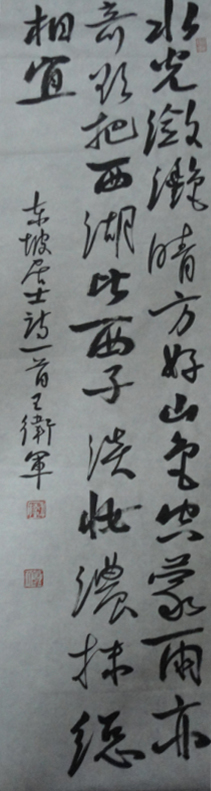 水光潋滟晴方好山色空蒙雨亦
奇欲把西湖比西子淡妆濃抹総
相宜
东坡居士詩一首王衛軍